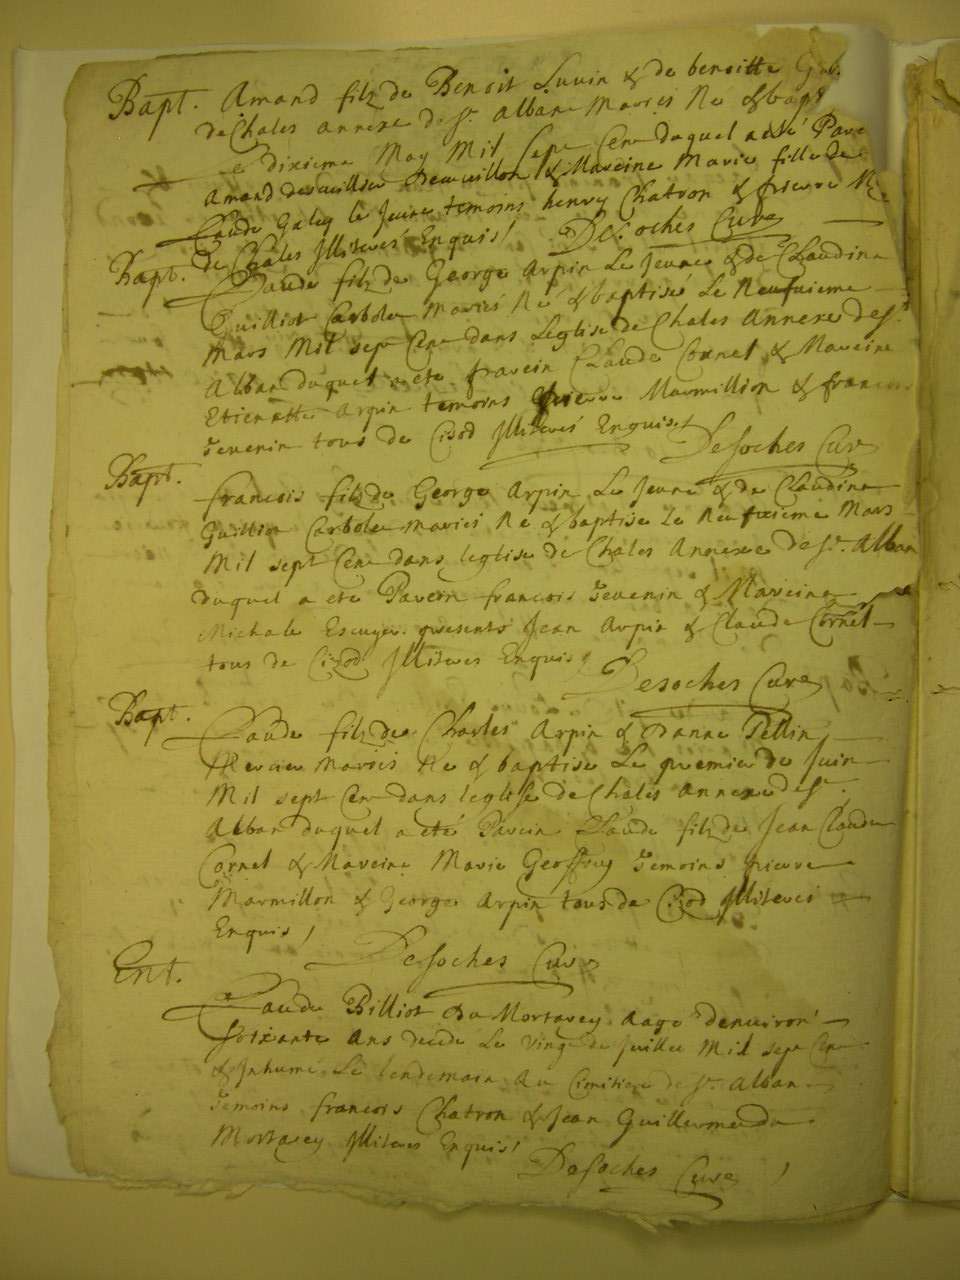 Bapt. Amand filz de Benoit Luvin & de benoitte
de Chales annexe de St. Alban Mariés Né & bapt
le dixieme May Mil sept Cens duquel a été Pare
Amand & Mareine Marie fille de
Claude Galey le Jeune temoins henry Chatron & pierre
de Chales Illiterés Enquis / Desoches Curé
Bapt. Claude filz de George Arpin Le Jeune & de Claudine
Guilliot Carbole Mariés Né & baptisé Le Neufvieme
Mars Mil sept Cens dans Leglise de Chales Annexe de St.
Alban duquel a été Pavein Claude Cornet & Mareine
Etienette Arpin temoins pierre Marmillion & francois
Tevenin tous de Cizod Illiterés Enquis / Desoches Curé
Bapt. francois filz de George Arpin Le Jeune & de Claudine
Guilliot Carbole mariés Né & baptisé Le Neufvieme Mars
Mil sept Cens dans leglise de Chales Annexe de St. Alban
duquel a été Pavein francois Tevenin & Mareine
Michale Escuyer presents Jean Arpin & Claude Cornet
tous de Cizod Illiteres Enquis /
Desoches Curé
Bapt. Claude filz de Charles Arpin & Danne Pellin
Mercier Mariés Né & baptisé Le premier de Juin
Mil sept Cens dans leglise de Chales annexe de St.
Alban duquel a eté Pavein Claude filz de Jean Claude
Cornet & Mareine Marie Geoffray Temoins pierre
Marmillon & George Arpin tous de Cizod Illiterés
Enquis /
Desoches Curé
Ent. Claude Billiot du Mortarey aagé denviron
Soixante ans decedé Le vingt de Juillet Mil sept Cens
& Inhumé Le lendemain Au Cimitiere de St. Alban
Temoins francois Chatron & Jean Guillermet du
Mortarey Illiteres Enquis /
Desoches Curé /